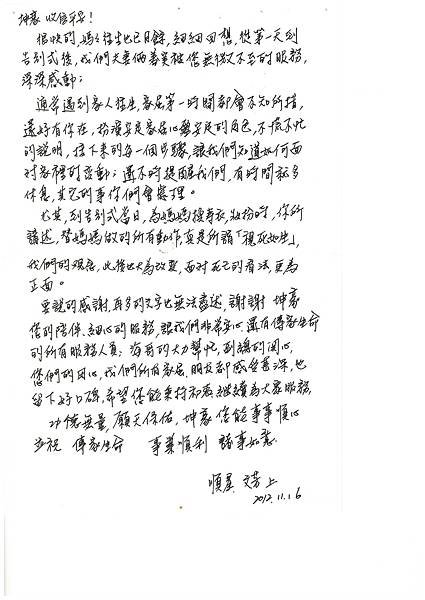 坤豪 收信平安!
很快的,媽媽往生也已月餘,細細回想,從第一天到
告別式後,我們夫妻倆著實被您無微不至的服務,
深深感動;
通常遇到家人往生,家屬第一時間都會不知所措,
還好有你在,扮演安定家屬心靈安定的角色,不慌不忙
的說明,接下來的每一個步驟,讓我們知道如何面
對各種的變動;還不時提醒我們,有時間就多
休息,其它的事你們會處理。
尤其,到告別式當日,為媽媽換壽衣,妝扮時,你所
講述,替媽媽做的所有動作,真是所謂「視死如生」,
我們的觀念,此後也大為改變,面對死亡的看法,更為
正面。
要說的感謝,再多的文字也無法盡述,謝謝 坤豪
您的陪伴,細心的服務,讓我們非常安心,還有傳家生命
的所有服務人員,海哥的大力幫忙,到讓的關心,
您們的用心,我們所有家屬、朋友都感受甚深,也
留下好口碑,希望您能秉持初衷繼續為大家服務,
功德無量,願天保佑,坤豪 您能事事順心
並祝 傳家生命 事業順利 諸事如意
順星 文芳 上
2012.11.16